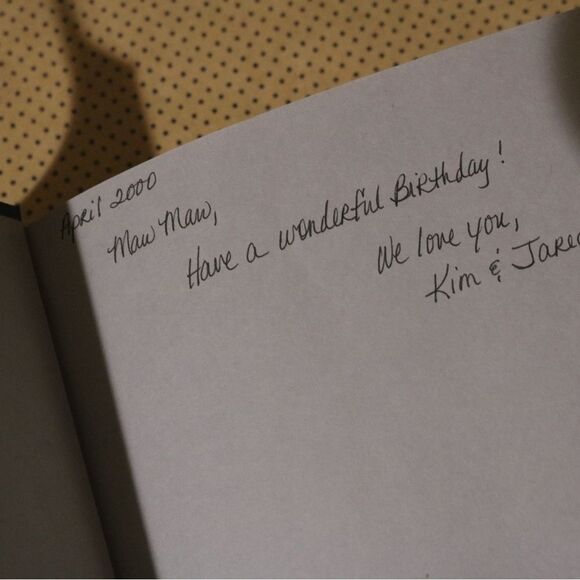 April 2000
Maw Maw,
Have a wonderful Birthday!
We love you,
Kim &